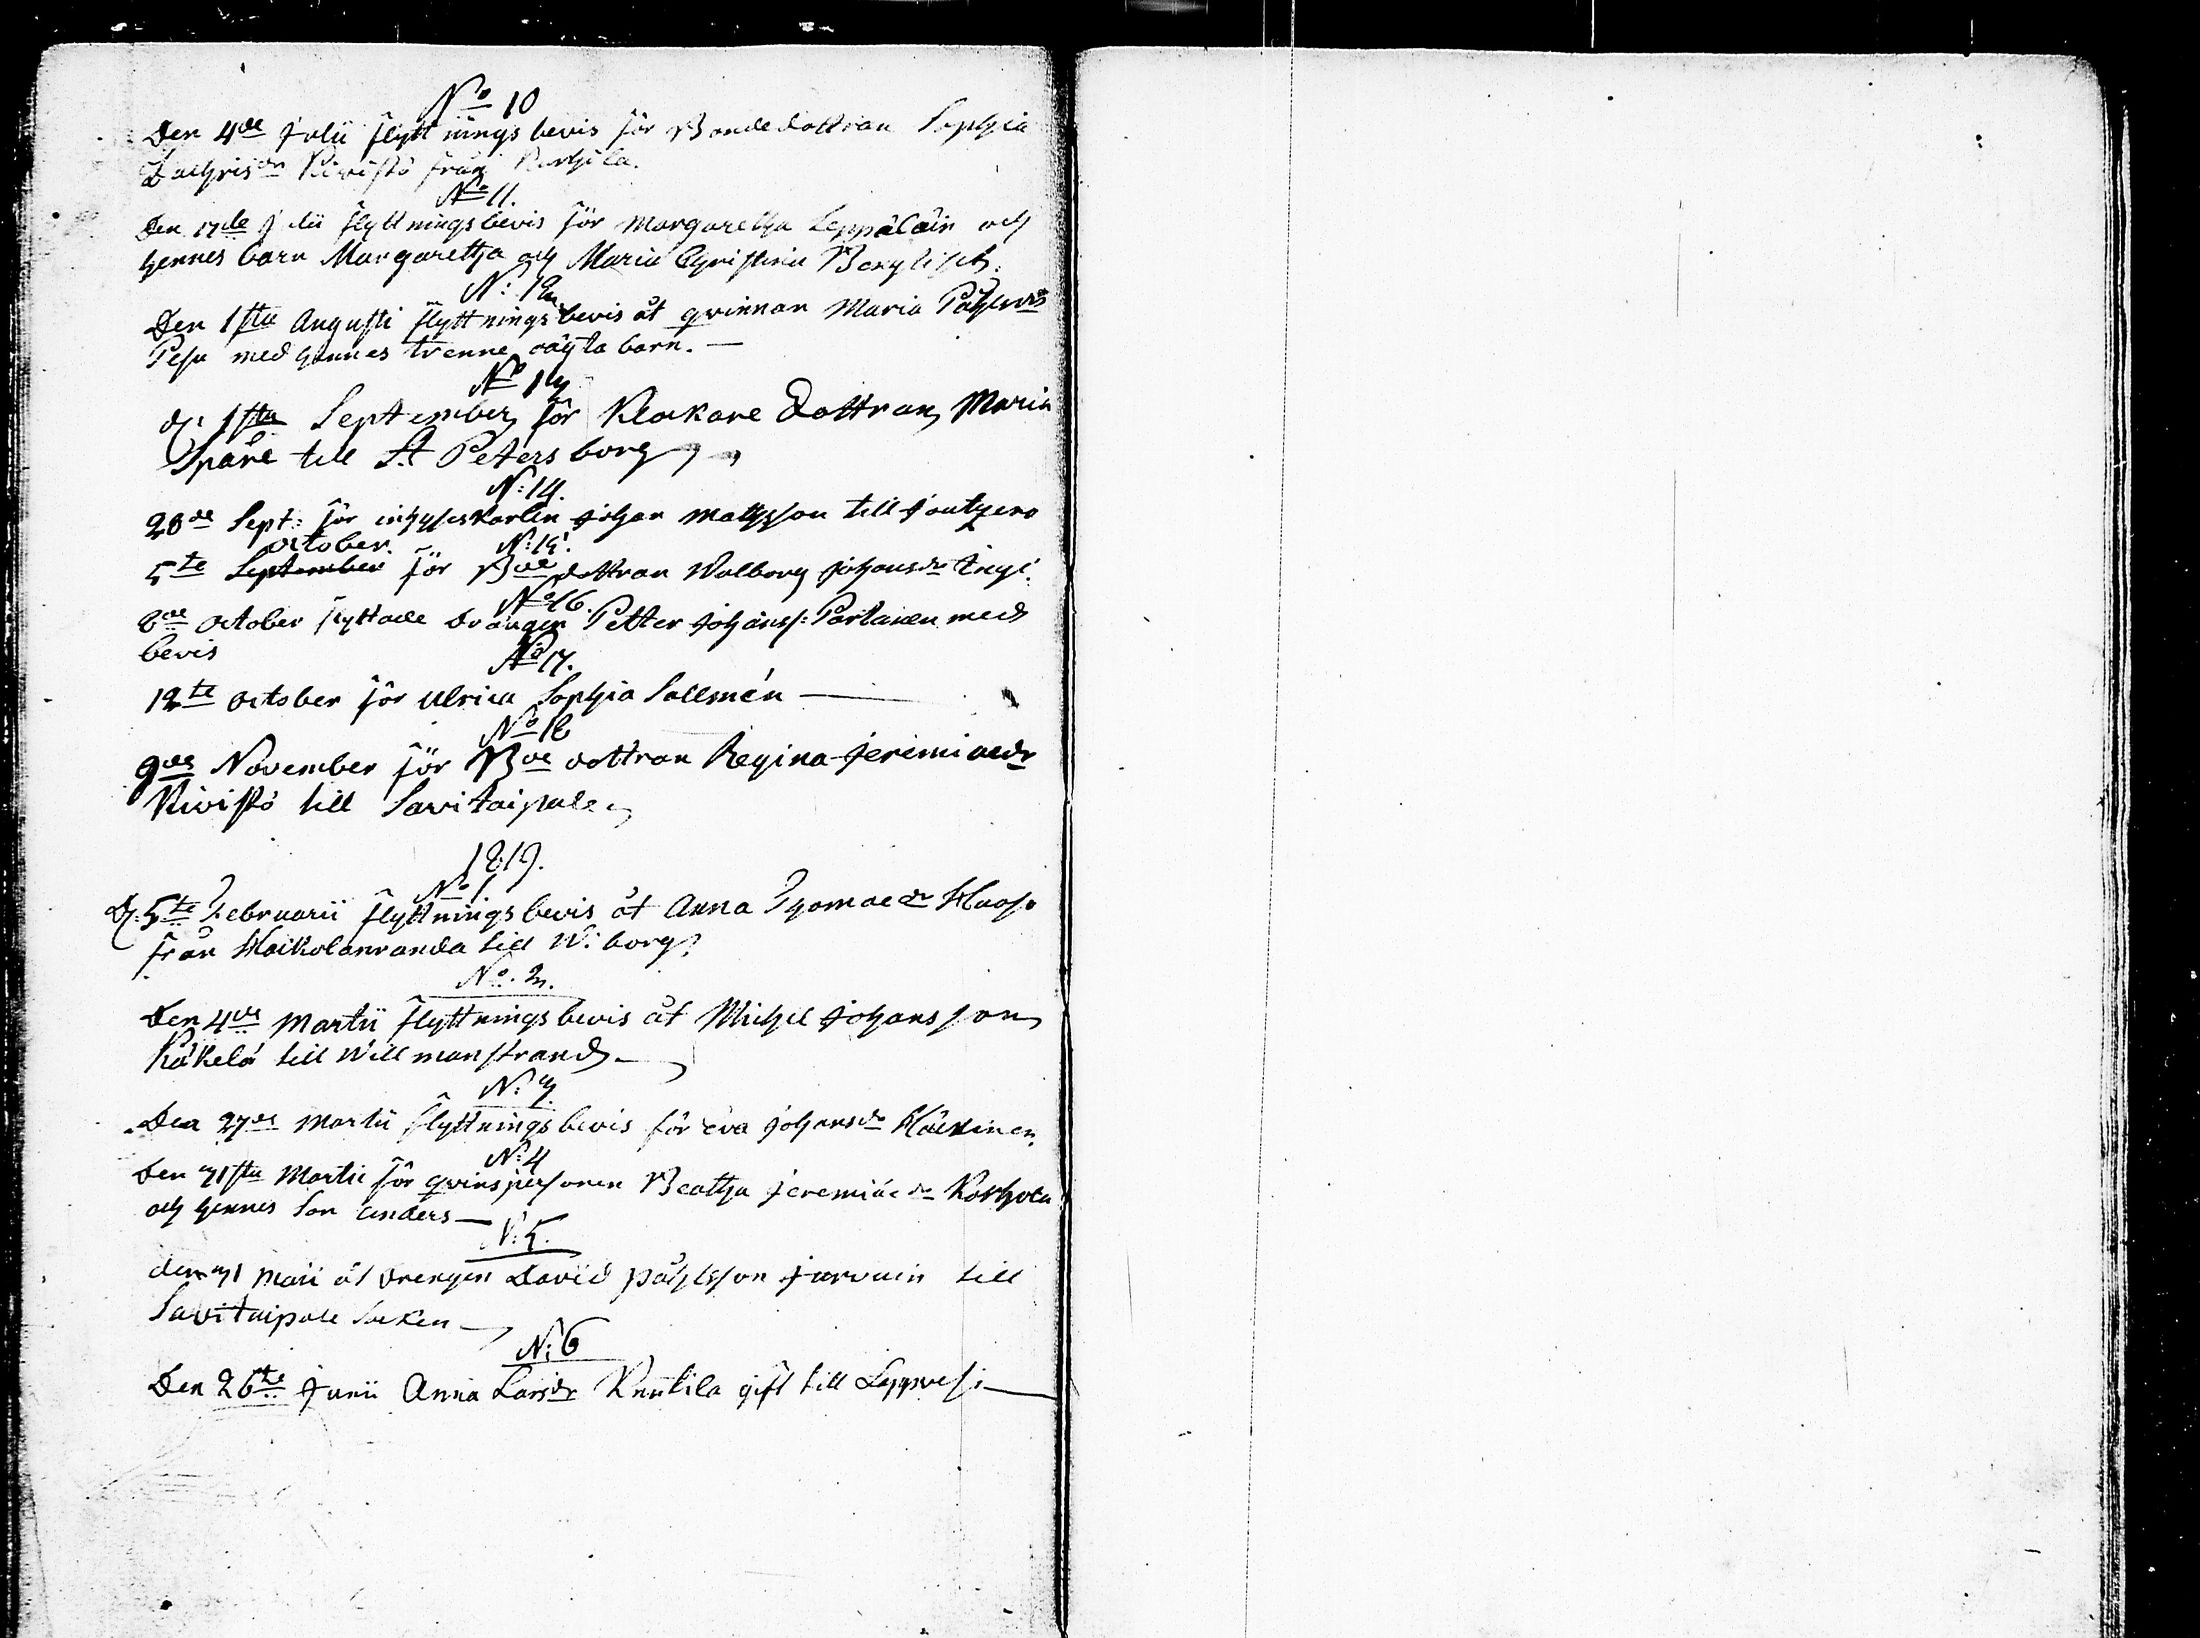 No 10
Den 4de Julii flyttningsbevis för Bondedottran Sophia
Zachrisdr Kivistö från Kurhila.
No 11.
Den 17de Julii flyttningsbevis för Margaretha Leppäläin och
hennes barn Margaretha och Maria Christina
N: 12.
Den 1sta Augusti flyttningsbevis åt qvinnan Maria Påhlsdr
Pesu med hennes trenne oägta barn. —
No 13
d: 1sta September för Klockare Dottran Maria
Spåre till St Petersborg
N: 14.
28de Sept: för inhyseskarlen Johan Mathsson till Joutzeno
October. N: 15.
5te September för Bde dottran Walborg Johansdr Ingi.
No 16.
8de October flyttade Drängen Petter Johanss: Partanen med
bevis
No 17.
12te October för Ulrica Sophia Sallmén —
No 18
9de November för Bde dottran Regina Jeremiaedr
Kivistö till Savitaipale
1819.
No 1.
D: 5te Februarii flyttningsbevis åt Anna Thomaedr
från till Wiborg
No. 2.
Den 4de Martii flyttningsbevis åt Michel Johansson
Käkelä till Willmanstrand —
N: 3.
Den 27de Martii flyttningsbevis för Eva Johansdr Häkkinen
N: 4
Den 31sta Martii för qvinspersonen Beatha Jeremiaedr
och hennes Son Anders —
N: 5.
den 31 Maii åt Drengen David Påhlsson Jarvain till
Savitaipale Socken —
N: 6
Den 26te Junii Anna Larsdr Knutila gift till Lappvesi —